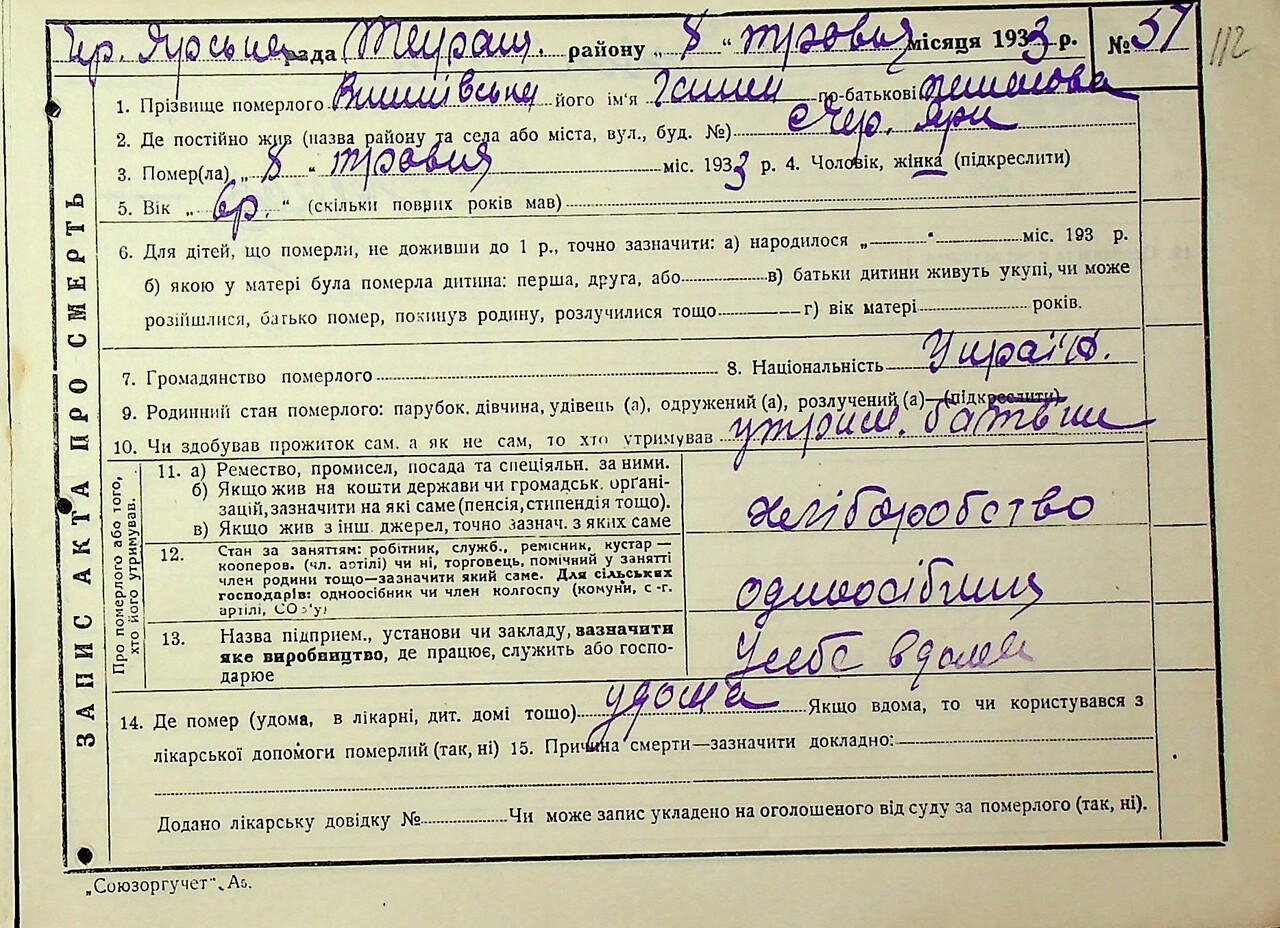 Чер. Ярська рада Тетіїв. району „ 8 “ травня місяця 1933 р. № 57
112
1. Прізвище померлого Вишнівська його ім'я Ганни по-батькові
2. Де постійно жив (назва району та села або міста, вул., буд. №) с Чер. Яри
3. Помер(ла) „ 8 “ травня міс. 1933 р. 4. Чоловік, жінка (підкреслити)
5. Вік „ 6р. “ (скільки повних років мав)
6. Для дітей, що померли, не доживши до 1 р., точно зазначити: а) народилося „ “ міс. 193 р.
б) якою у матері була померла дитина: перша, друга, або в) батьки дитини живуть укупі, чи може
розійшлися, батько помер, покинув родину, розлучилися тощо г) вік матері років.
7. Громадянство померлого 8. Національність Україн.
9. Родинний стан померлого: парубок, дівчина, удівець (а), одружений (а), розлучений (а)—(підкреслити).
10. Чи здобував прожиток сам, а як не сам, то хто утримував утрим. батьки
ЗАПИС АКТА ПРО СМЕРТЬ
Про померлого або того,
хто його утримував.
11. а) Ремество, промисел, посада та спеціяльн. за ними.
б) Якщо жив на кошти держави чи громадськ. орґані-
зацій, зазначити на які саме (пенсія, стипендія тощо).
в) Якщо жив з інш. джерел, точно зазнач. з яких саме
хліборобство
12. Стан за заняттям: робітник, служб., ремісник, кустар —
кооперов. (чл. артілі) чи ні, торговець, помічний у занятті
член родини тощо—зазначити який саме. Для сільських
господарів: одноосібник чи член колгоспу (комуни, с.-г.
артілі, СОЗ'у)
одноосібник
13. Назва підприєм., установи чи закладу, зазначити
яке виробництво, де працює, служить або госпо-
дарює
у себе вдома
14. Де помер (удома, в лікарні, дит. домі тощо) удома Якщо вдома, то чи користувався з
лікарської допомоги померлий (так, ні) 15. Причина смерти—зазначити докладно:
Додано лікарську довідку № Чи може запис укладено на оголошеного від суду за померлого (так, ні).
„Союзоргучет“. А5.